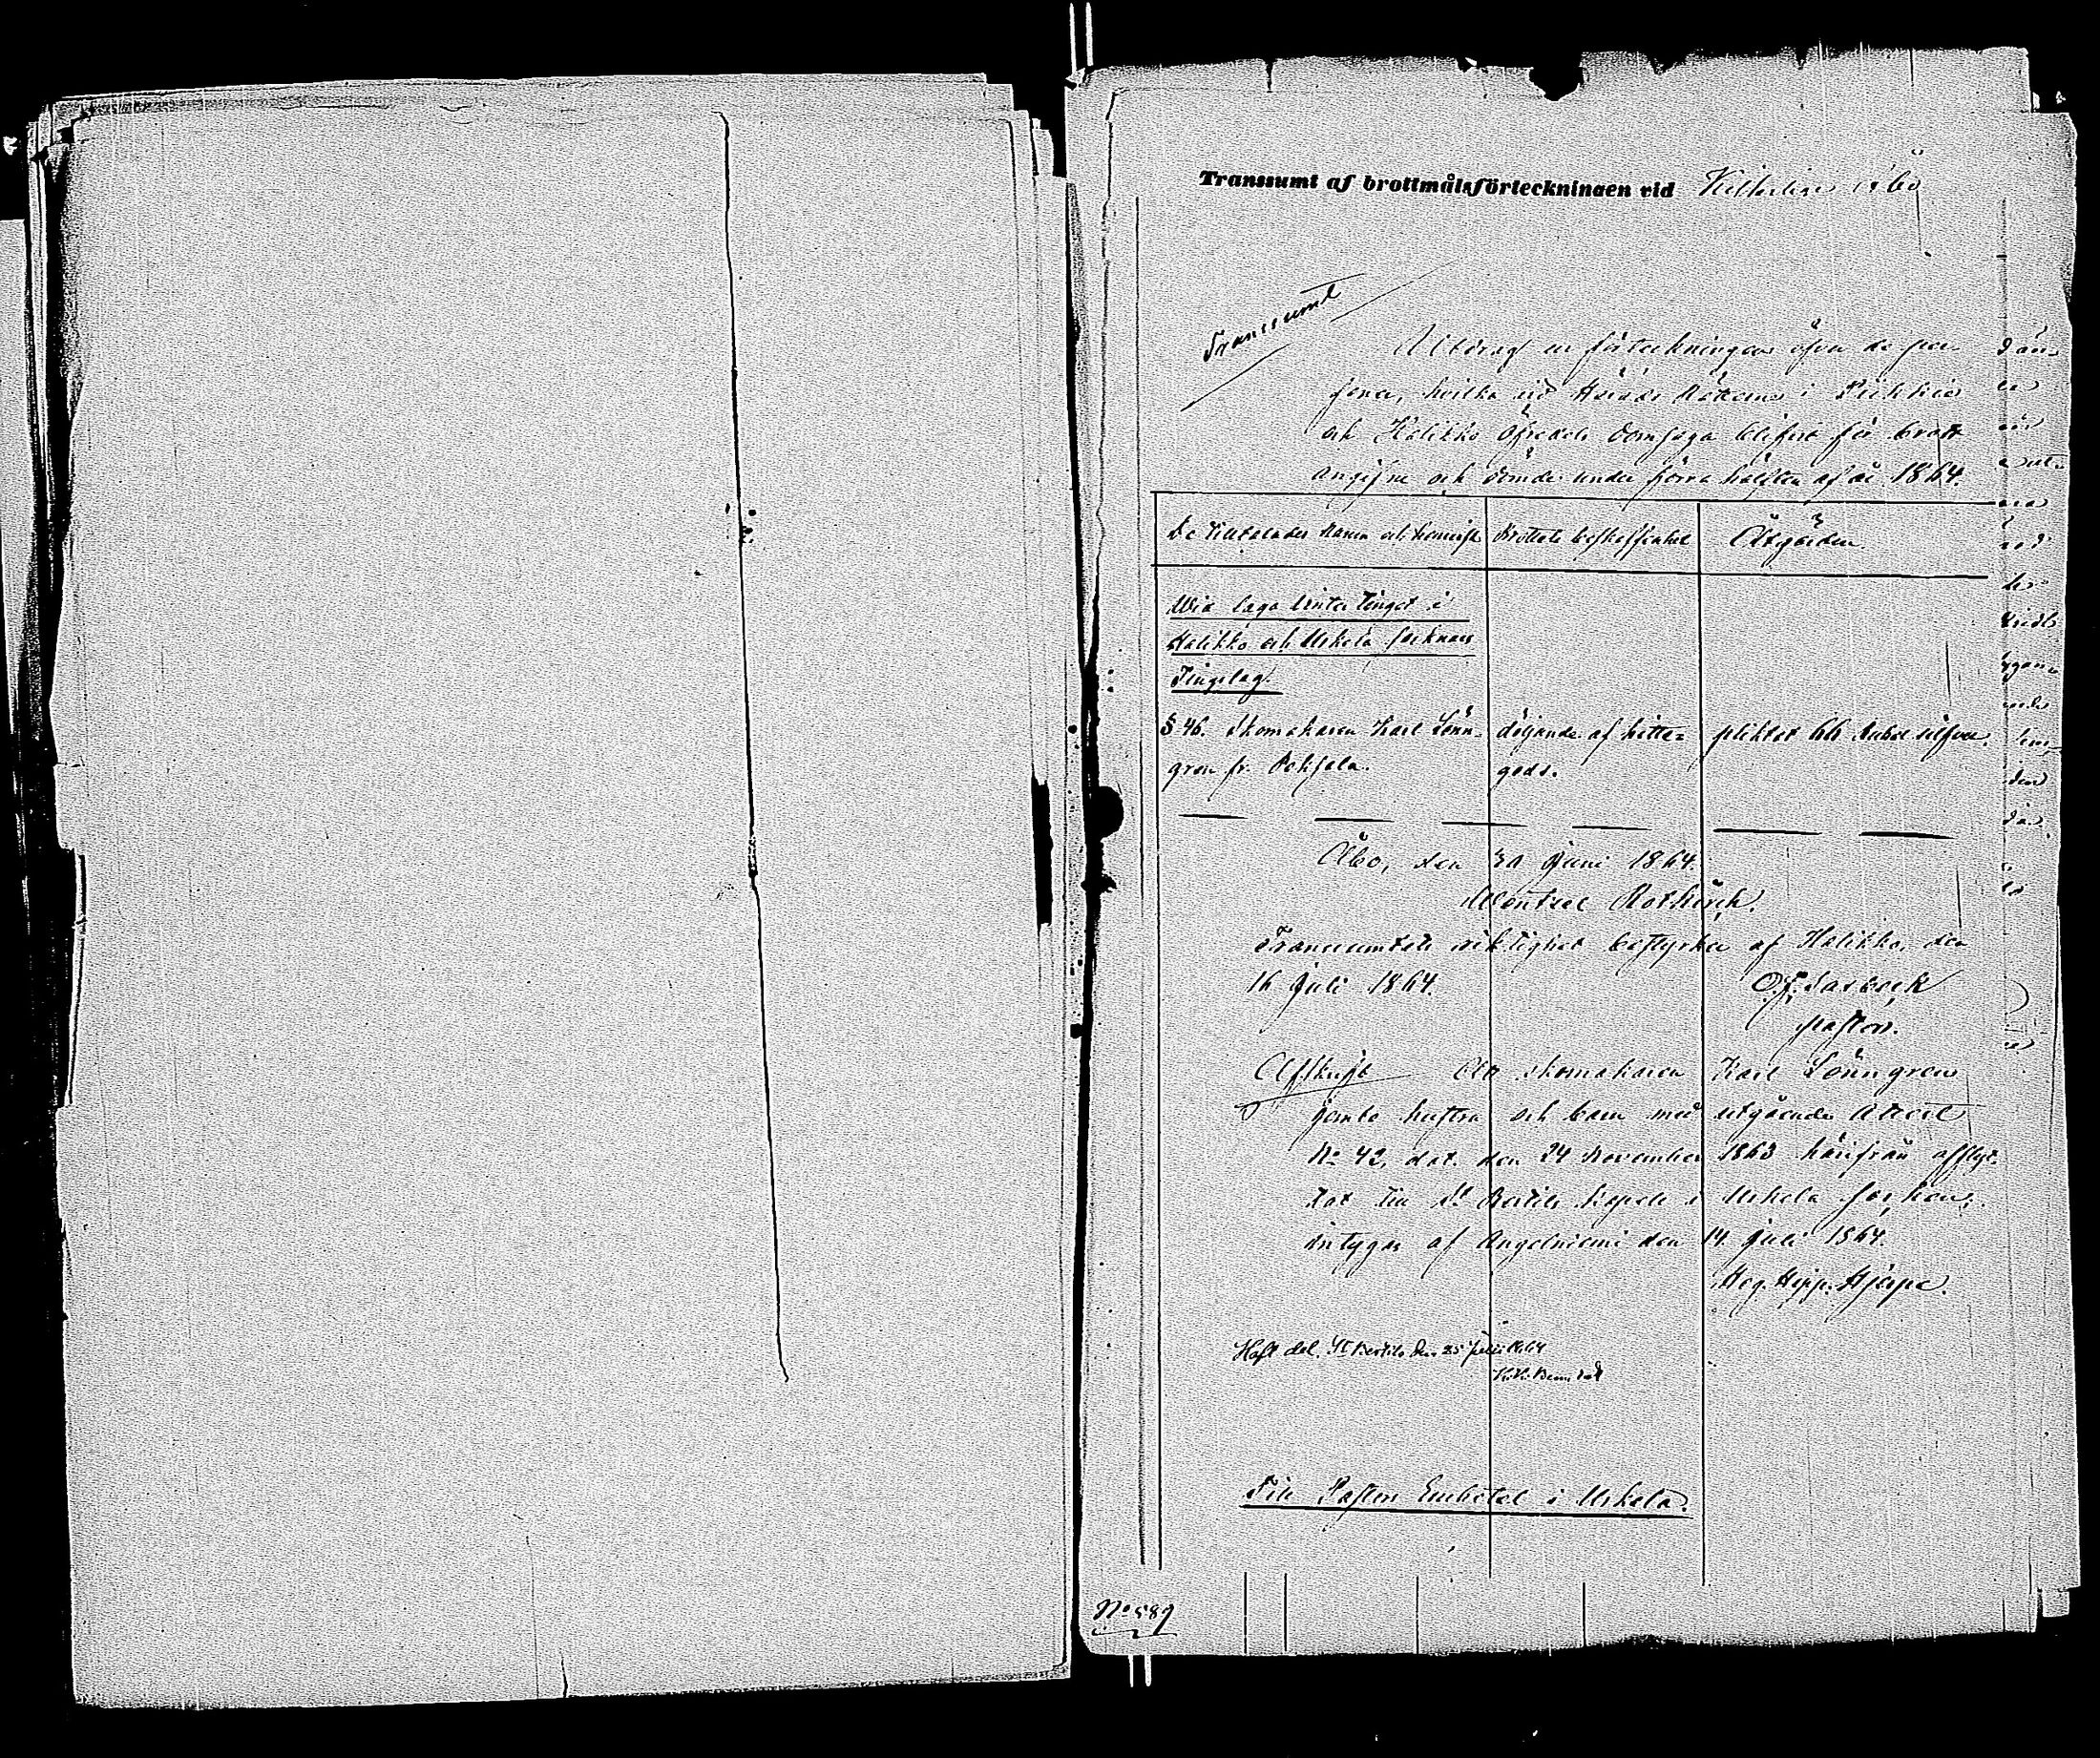 Transsumt af brottmålsförteckningen vid
Transsumt
Utdrag ur förteckningen öfver de per-
soner, hvilka vid Härads Rätterne i Piikkis
och Halikko öfredels domsaga blifvit för brott
angifne och dömde under förra hälften af år 1864.
De Tilltalades namn och hemvist
Brottets beskaffenhet
Åtgärden.
Wid laga Vintertinget i
Halikko och Uskela socknars
Tingslag.
§ 46. Skomakaren Karl Lönn-
gren fr. Pohjola.
döljande af hitte-
gods.
pliktat 66 Rubel silfver.
Åbo, den 30 Juni 1864.
Rotkirch.
Transsumtets riktighet bestyrker af Halikko, den
16 Juli 1864.
pastor.
Afskrift Att skomakaren Karl Lönngren
jemte hustru och barn med utgående Attest
No 42, dat. den 24 November 1863 härifrån afflyt-
tat till St Bertils kapell i Uskela socken,
intygas af Angelniemi den 14 Juli 1864.
Hög. Hjerpe.
Haft del. St Bertils den 25 Juli 1864
Till Pastors Embetet i Uskela.
No 589